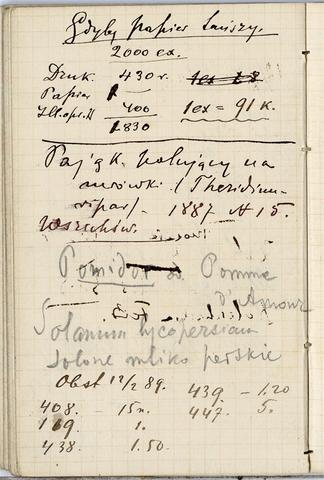 Gdyby papier tańszy.
2000 ex.
Druk 430 r.
Papier 1 —
400 1 ex = 91 k.
1830
Pająk polujący na
mrówki (Theridium
ripar) — 1887 № 15.
Wszechśw.
Pomidor Pomme
d'Amour
Solanum lycopersicum
solone mliko perskie
Obst 12/2 89. 439 — 1.20
408. — 15 n. 447. 5.
169 1.
438 1.50.